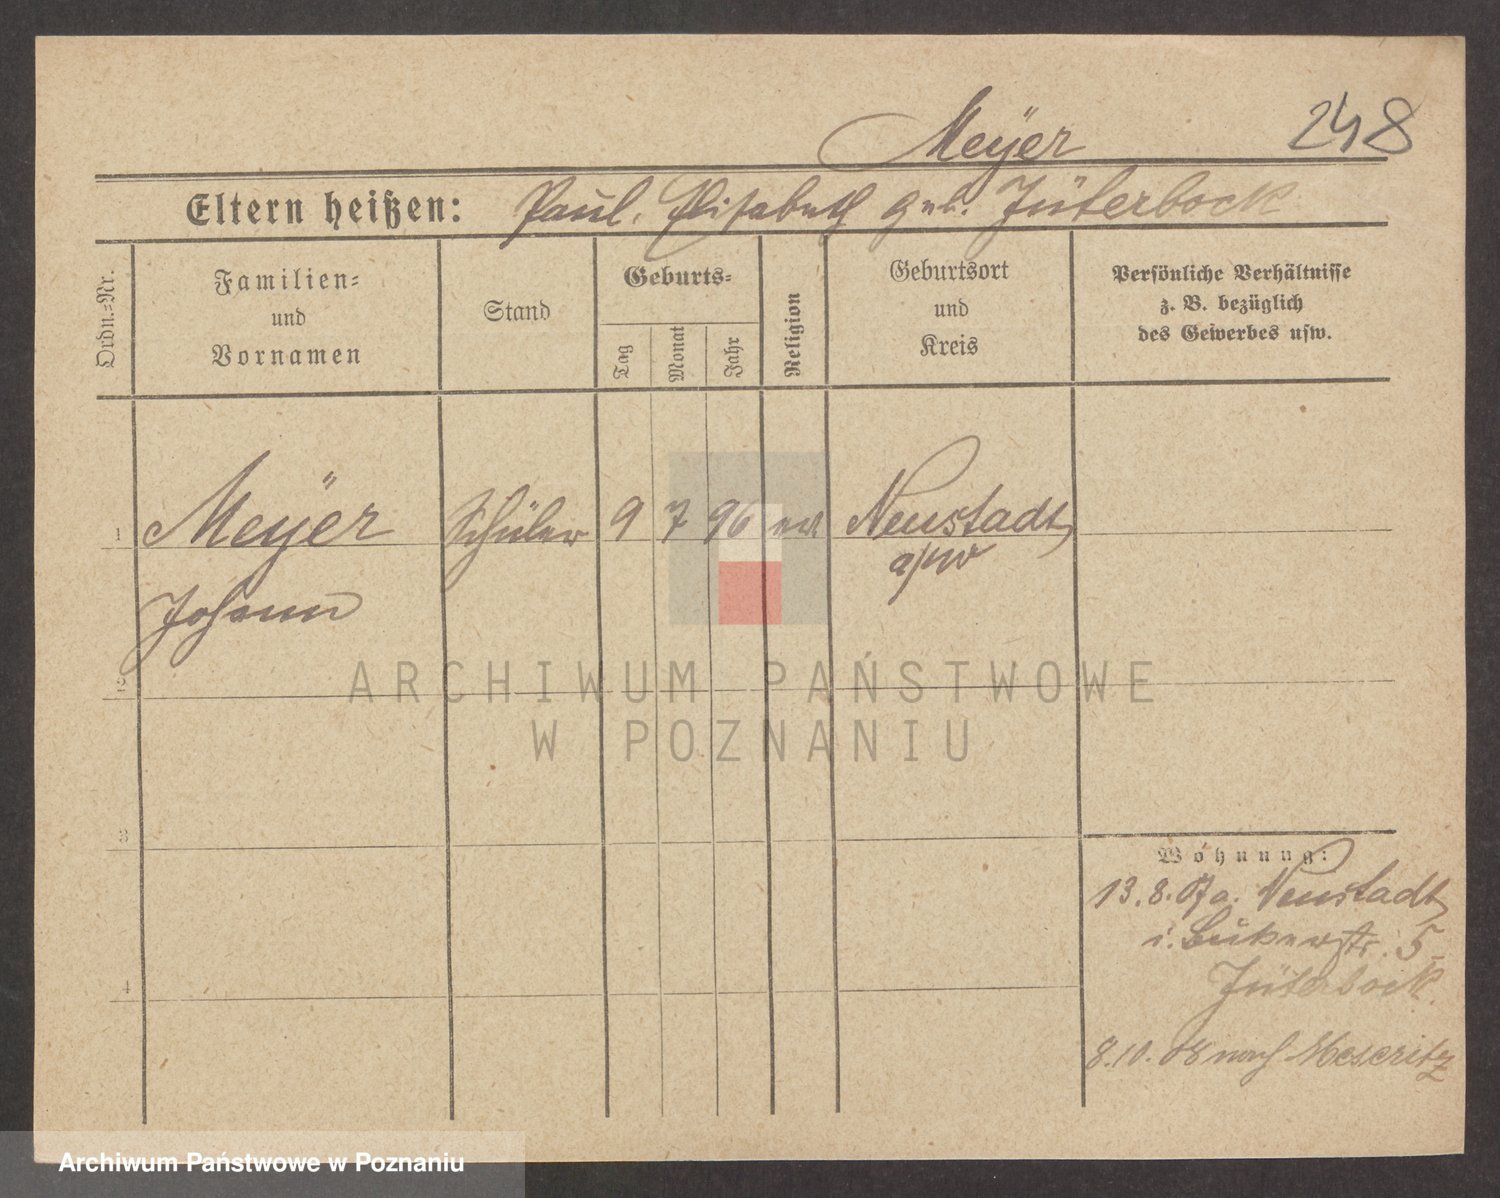 Meÿer
248
Eltern heißen: Paul, Elisabeth geb. Jüterbock
Ordn.-Nr.
Familien-
und
Vornamen
Stand
Geburts-
Tag
Monat
Jahr
Religion
Geburtsort
und
Kreis
Persönliche Verhältnisse
z. B. bezüglich
des Gewerbes usw.
1 Meÿer Schüler 9 7 96 ev. Neustadt
a/W
Johann
2
3
4
Wohnung:
13.8.07 a. Neustadt
i. Bukerstr. 5
Jüterbock
8.10.08 nach Meseritz
ARCHIWUM PAŃSTWOWE
W POZNANIU
Archiwum Państwowe w Poznaniu